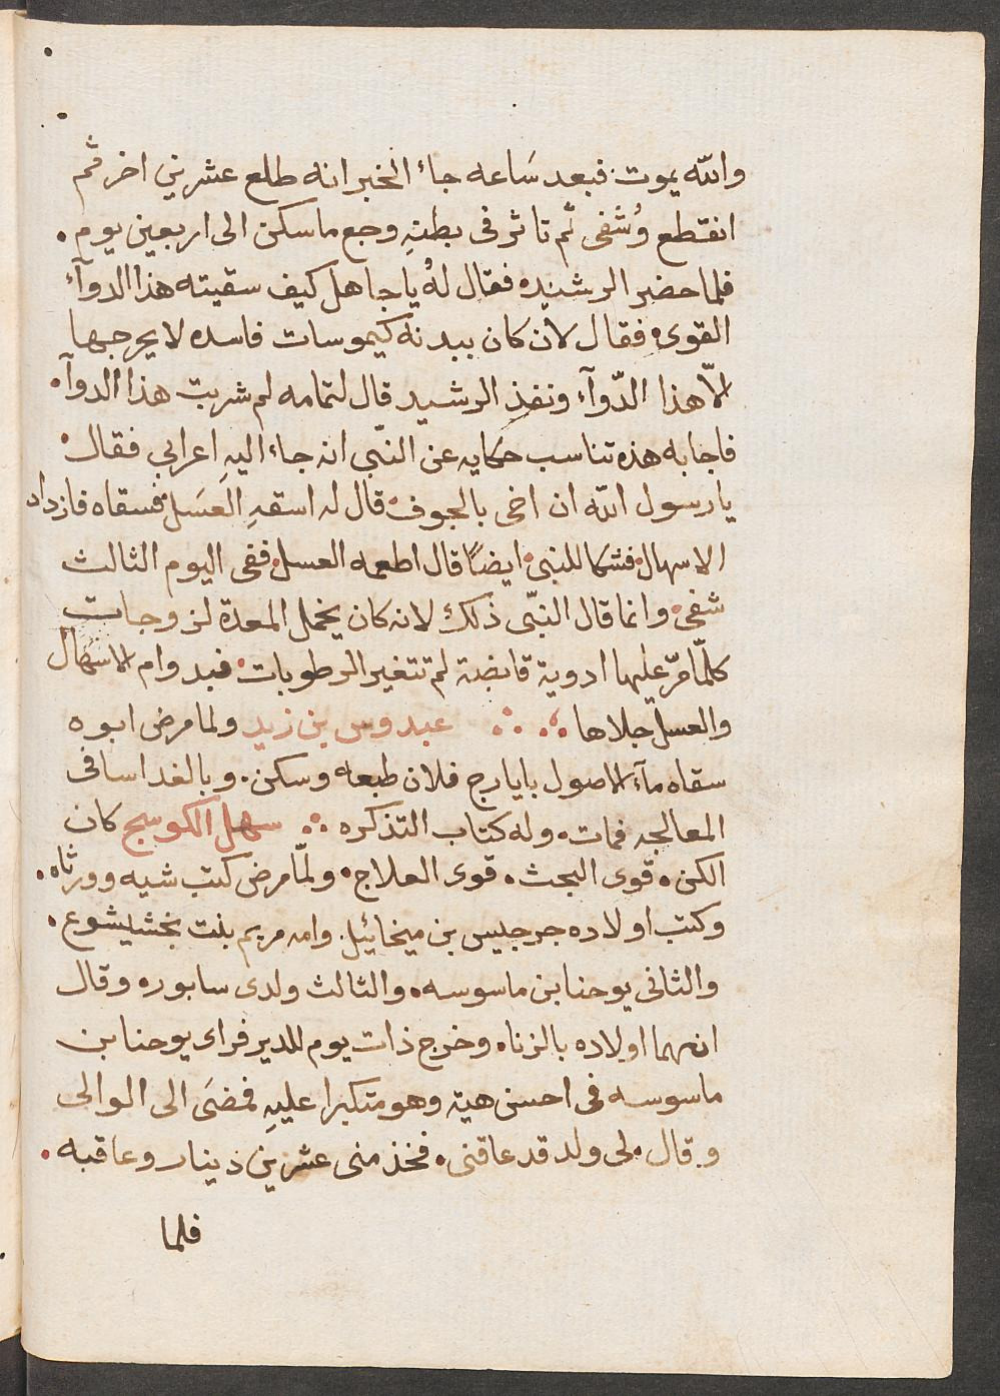 والله يموت. فبعد سَاعه جاء الخبر انه طلع عشرين اخر ثم
انقطع وُشفى ثم تاثر فى بطنهِ وجع ما سكن الى اربعين يوم.
فلما حضر الرشيد. فقال لهُ يا جاهل كيف سقيته هذا الدوآء
القوى. فقال لان كان ببدنه كيموسات فاسده لا يخرجها
الّا هذا الدّوآء ونفذ الرشيد قال لتمامه لم شربت هذا الدوآء.
فاجابه هذه تناسب حكايه عن النّبى انه جاء اليهِ اعرابي فقال.
يا رسول الله ان اخى بالجوف. قال له اسقهِ العسَل. فسقاه فازداد
الاسهال. فشكا للنبى. ايضًا قال اطعمه العسل. ففى اليوم الثالث
شفى. وانما قال النبّى ذلك لانه كان بخمل المعدة لزوجات
كلمّا مرّ عليها ادوية قابضة لم تتغير الرطوبات. فبدوام الاسهال
والعسل جلاها عبدوس بن زيد ولما مرض ابوه
سقاه مآء الاصول بايارج فلان طبعه وسكن. وبالغد اسا فى
المعالجه فمات. وله كتاب التذكره سهل الكوسج كان
الكن. قوى البحث. قوى العلاج. ولمّا مرض كتب شيه وورثاه.
وكتب اولاده جرجيس بن ميخائيل. وامه مريم بنت بخشيشوع.
والثانى يوحنا بن ماسوسه. والثالث ولدى سابوره وقال
انهما اولاده بالزنا. وخرج ذات يوم للدير فراى يوحنا بن
ماسوسه فى احسن هية وهو متكبرا عليهِ فمضَى الى الوالى
وقال. لى ولد قد عاقنى. فخذ منى عشرين دينار وعاقبه.
فلما